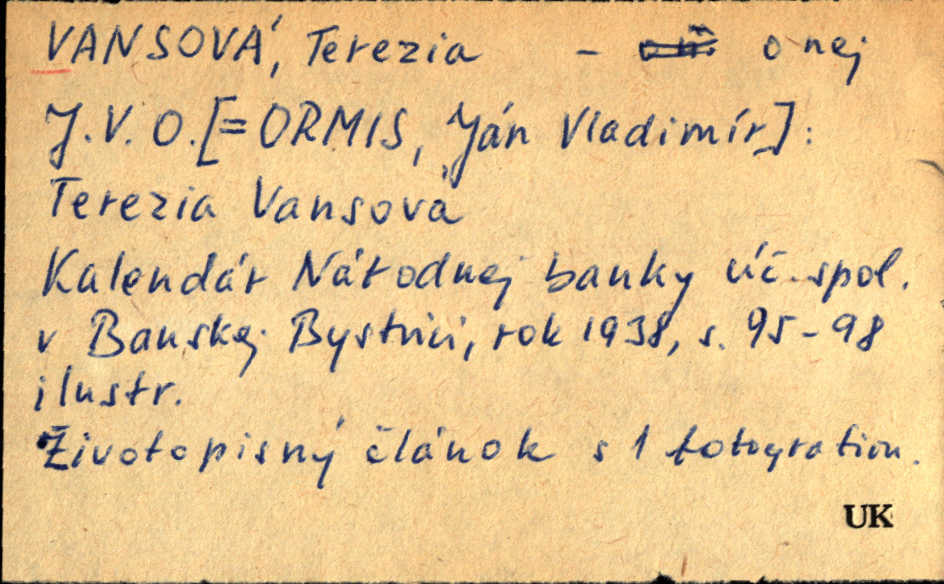 VANSOVÁ, Terezia - o nej
J.V.O. [= ORMIS, Ján Vladimír]:
Terezia Vansová
Kalendár Národnej banky úč. spol.
v Banskej Bystrici, rok 1938, s. 95-98
ilustr.
Životopisný článok s 1 fotografiou.
UK